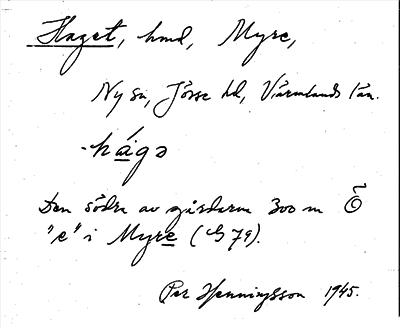 Haget, hmd, Myre,
Ny sn, Jösse hd, Värmlands län.
-hágə
Den södra av gårdarna 300 m Ö
"e" i Myre (G 79).
Per Henningsson 1945.